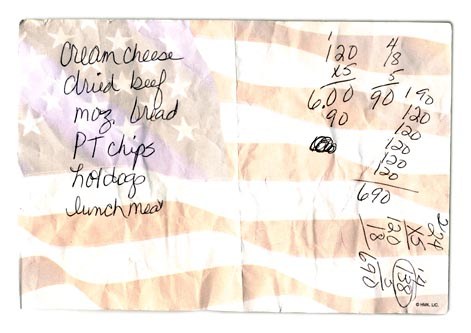 cream cheese
dried beef
moz. bread
PT chips
hotdogs
lunch meat
1
120
x5
6.00
.90
4/8
5
90
190
120
120
120
120
690
120
18
690
138
© HMK. LIC.